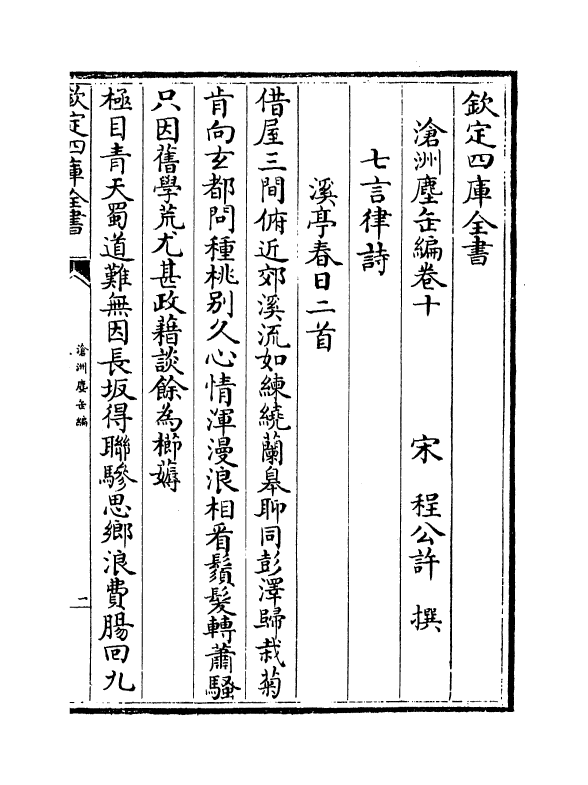 欽定四庫全書
滄洲塵缶編卷十
宋 程公許 撰
七言律詩
溪亭春日二首
借屋三間俯近郊溪流如練繞蘭皋聊同彭澤歸栽菊
肯向玄都問種桃别久心情渾漫浪相看鬚髮轉蕭騷
只因舊學荒尤甚政藉談餘為櫛薅
極目青天蜀道難無因長坂得聯驂思鄉浪費腸回九
欽定四庫全書
滄洲塵缶編